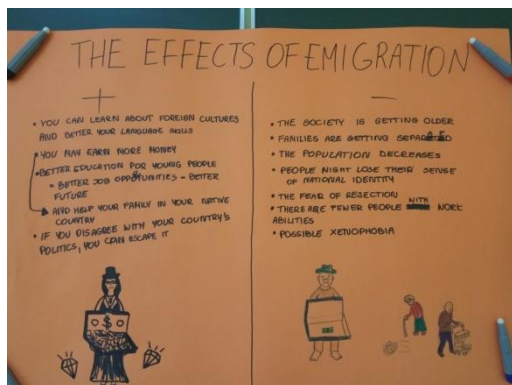 THE EFFECTS OF EMIGRATION
+
• YOU CAN LEARN ABOUT FOREIGN CULTURES
AND BETTER YOUR LANGUAGE SKILLS
• YOU MAY EARN MORE MONEY
• BETTER EDUCATION FOR YOUNG PEOPLE
• BETTER JOB OPPORTUNITIES - BETTER
FUTURE
AND HELP YOUR FAMILY IN YOUR NATIVE
COUNTRY
• IF YOU DISAGREE WITH YOUR COUNTRY'S
POLITICS, YOU CAN ESCAPE IT
$
—
• THE SOCIETY IS GETTING OLDER
• FAMILIES ARE GETTING SEPARATED
• THE POPULATION DECREASES
• PEOPLE MIGHT LOSE THEIR SENSE
OF NATIONAL IDENTITY
• THE FEAR OF REJECTION
• THERE ARE FEWER PEOPLE WITH WORK
ABILITIES
• POSSIBLE XENOPHOBIA